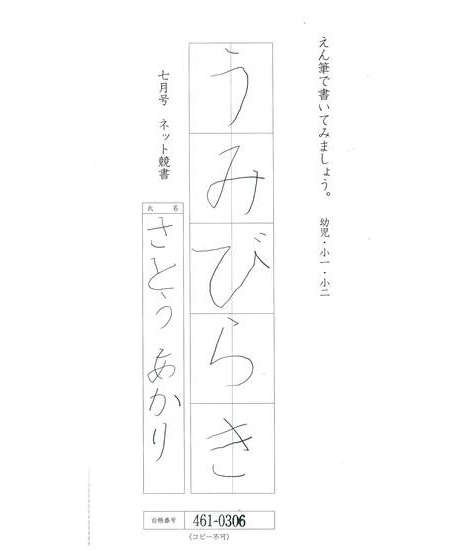 えん筆で書いてみましょう。 幼児・小一・小二
うみびらき
七月号 ネット競書
氏名
さとう あかり
合格番号 461-0306
(コピー不可)